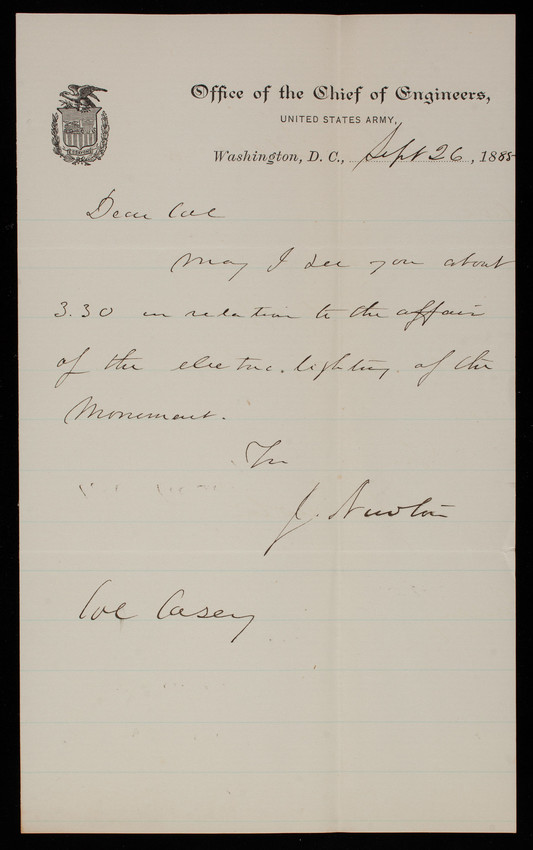 Office of the Chief of Engineers,
UNITED STATES ARMY,
Washington, D. C., Sept 26, 1885
Dear Col
May I see you about
3.30 in relation to the affair
of the electric lighting of the
Monument.
J. Newton
Col Casey